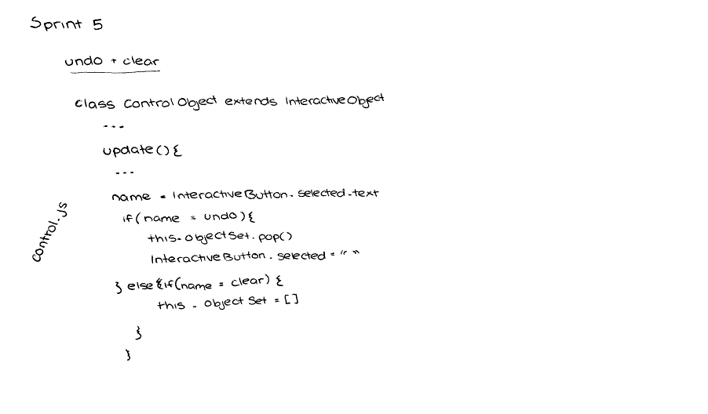 Sprint 5
undo + clear
class ControlObject extends InteractiveObject
...
update(){
...
name = InteractiveButton.selected.text
if(name = undo){
this.objectSet.pop()
InteractiveButton.selected = " "
} else{if(name = clear) {
this.objectSet = []
}
}
control.js